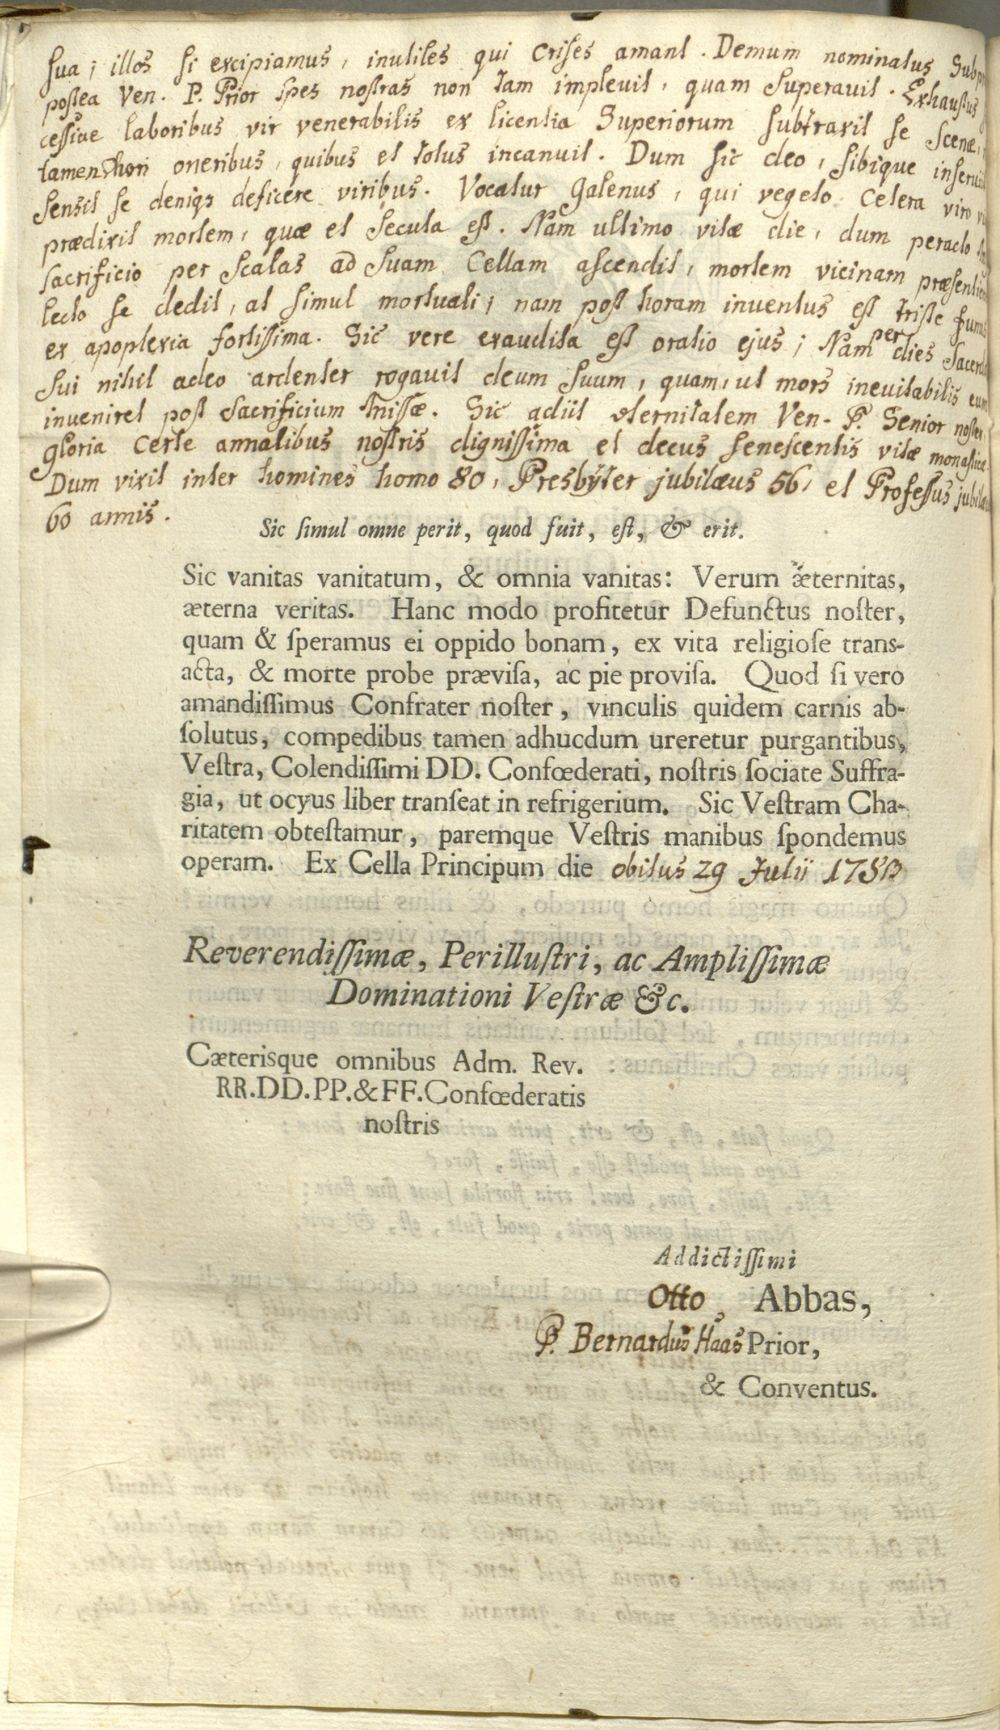 sua; illos si excipiamus, inutiles qui Crises amant. Demum nominatus
postea Ven. P. Prior spes nostras non tam implevit, quam superavit. Exhaustus
cessive laboribus vir venerabilis ex licentia Superiorum subtraxit se scenæ,
tamen oneribus, quibus et totus incanuit. Dum sic deo, sibique
sensit se deniqs deficere viribus. Vocatur Galenus, qui vegeto Cetera viro
prædixit mortem, quæ et secuta est. Nam ultimo vitæ die, dum peracto
sacrificio per scalas ad suam Cellam ascendit, mortem vicinam
lecto se dedit, at simul mortuali; nam post horam inventus est triste
ex apoplexia fortissima. Sic vere exaudita est oratio ejus; Nam per dies
sui nihil adeo ardenter rogavit deum suum, quam, ut mors inevitabilis eum
inveniret post sacrificium Missæ. Sic adiit æternitatem Ven. P. Senior noster
gloria certe annalibus nostris dignissima et decus senescentis vitæ monasticæ
Dum vixit inter homines homo 80, Presbyter jubilæus 56, et Professus
60 annis.
Sic ſimul omne perit, quod fuit, eſt, & erit.
Sic vanitas vanitatum, & omnia vanitas: Verum æternitas,
æterna veritas. Hanc modo profitetur Defunctus noſter,
quam & ſperamus ei oppido bonam, ex vita religioſe trans-
acta, & morte probe præviſa, ac pie proviſa. Quod ſi vero
amandiſſimus Confrater noſter, vinculis quidem carnis ab-
ſolutus, compedibus tamen adhucdum ureretur purgantibus,
Veſtra, Colendiſſimi DD. Confœderati, noſtris ſociate Suffra-
gia, ut ocyus liber tranſeat in refrigerium. Sic Veſtram Cha-
ritatem obteſtamur, paremque Veſtris manibus ſpondemus
operam. Ex Cella Principum die obitus 29 Julij
Reverendiſſimæ, Perilluſtri, ac Ampliſſimæ
Dominationi Veſtræ &c.
Cæterisque omnibus Adm. Rev.
RR.DD.PP.&FF.Confœderatis
noſtris
Addictiſſimi
Otto Abbas,
P. Bernardus Haas Prior,
& Conventus.